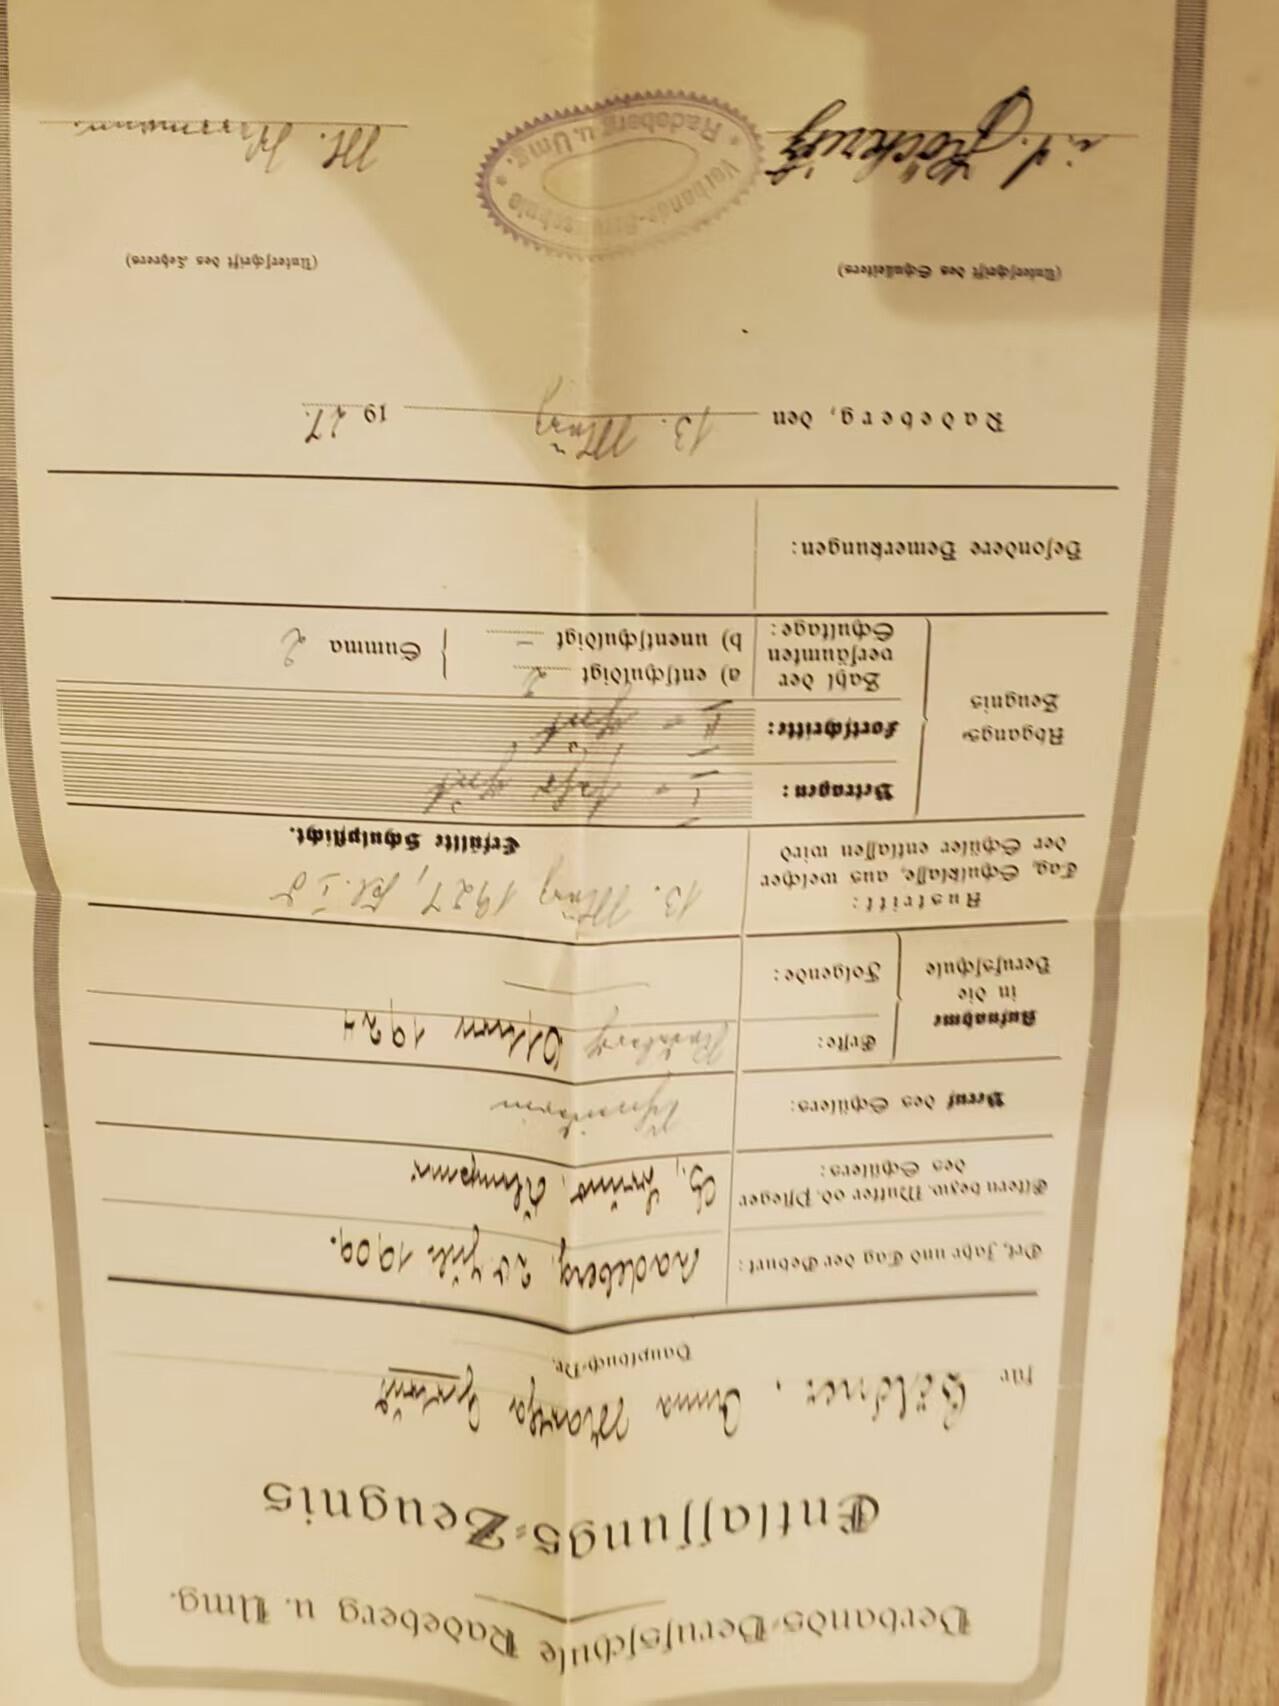 Verbands-Berufsschule Radeberg u. Umg.
Entlassungs-Zeugnis
für Göldner, Anna Martha Gertrud
Hauptbuch-Nr.
Ort, Jahr und Tag der Geburt: Radeberg, 20. Juli 1909.
Eltern bezw. Mutter od. Pfleger
des Schülers:
Beruf des Schülers:
Aufnahme
in die
Berufsschule
Erste: Radeberg Ostern 1924
Folgende:
Austritt:
Tag, Schulklasse, aus welcher
der Schüler entlassen wird
13. März 1927, Kl. I
Erfüllte Schulpflicht.
Abgangs-
Zeugnis
Betragen: I - sehr gut
Fortschritte: II - gut
Zahl der
versäumten
Schultage:
a) entschuldigt 2
b) unentschuldigt -
Summa 2
Besondere Bemerkungen:
Radeberg, den 13. März 1927.
(Unterschrift des Schulleiters)
(Unterschrift des Lehrers)
Verbands-Berufsschule
* Radeberg u. Umg. *